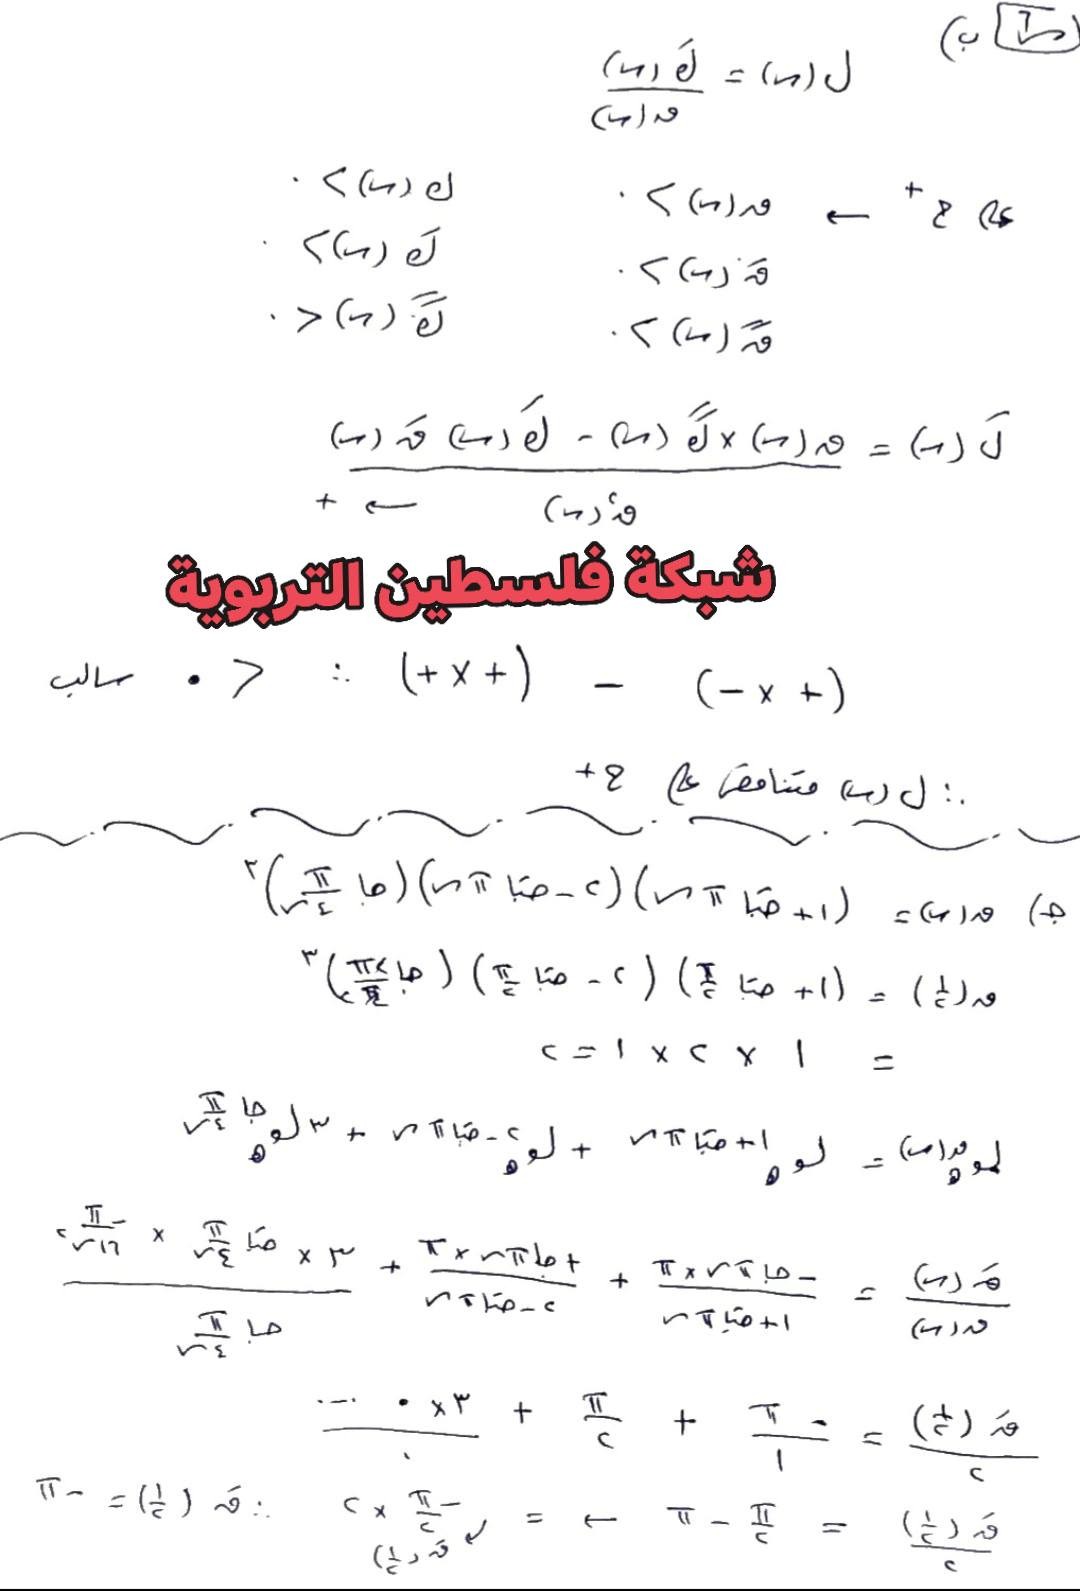 س٦ ب)
ل(س) = كَ(س) / ق(س)
على ح+ ← ق(س) > ٠    ك(س) > ٠
قَ(س) > ٠    كَ(س) > ٠
قً(س) > ٠    كً(س) < ٠
لَ(س) = ق(س) × كً(س) - كَ(س) قَ(س) / ق٢(س) ← +
شبكة فلسطين التربوية
(+ × -) - (+ × +) ∴ < ٠ سالب
∴ ل(س) متناقص على ح+
ج) ق(س) = (١ + جتا π س)(٢ - جتا π س)(جا π/٤س)٣
ق(١/٢) = (١ + جتا π/٢)(٢ - جتا π/٢)(جا ٢π/٤)٣
= ١ × ٢ × ١ = ٢
لوهـ ق(س) = لوهـ ١ + جتا π س + لوهـ ٢ - جتا π س + ٣ لوهـ جا π/٤س
قَ(س) / ق(س) = -جا π س × π / ١ + جتا π س + +جا π س × π / ٢ - جتا π س + ٣ × جتا π/٤س × -π/١٦س٢ / جا π/٤س
قَ(١/٢) / ٢ = -π / ١ + π/٢ + ٣ × ٠ .... / ١
قَ(١/٢) / ٢ = π/٢ - π ← = -π/٢ × ٢ ∴ قَ(١/٢) = -π
قَ(١/٢)